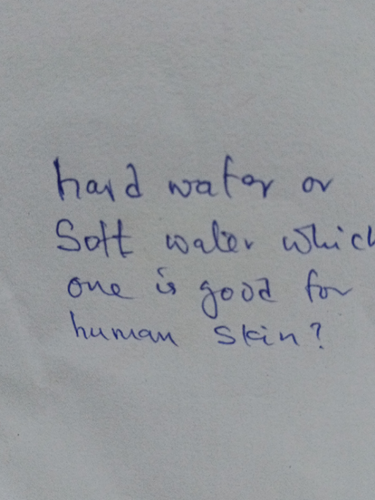 hard water or
Soft water which
one is good for
human skin?